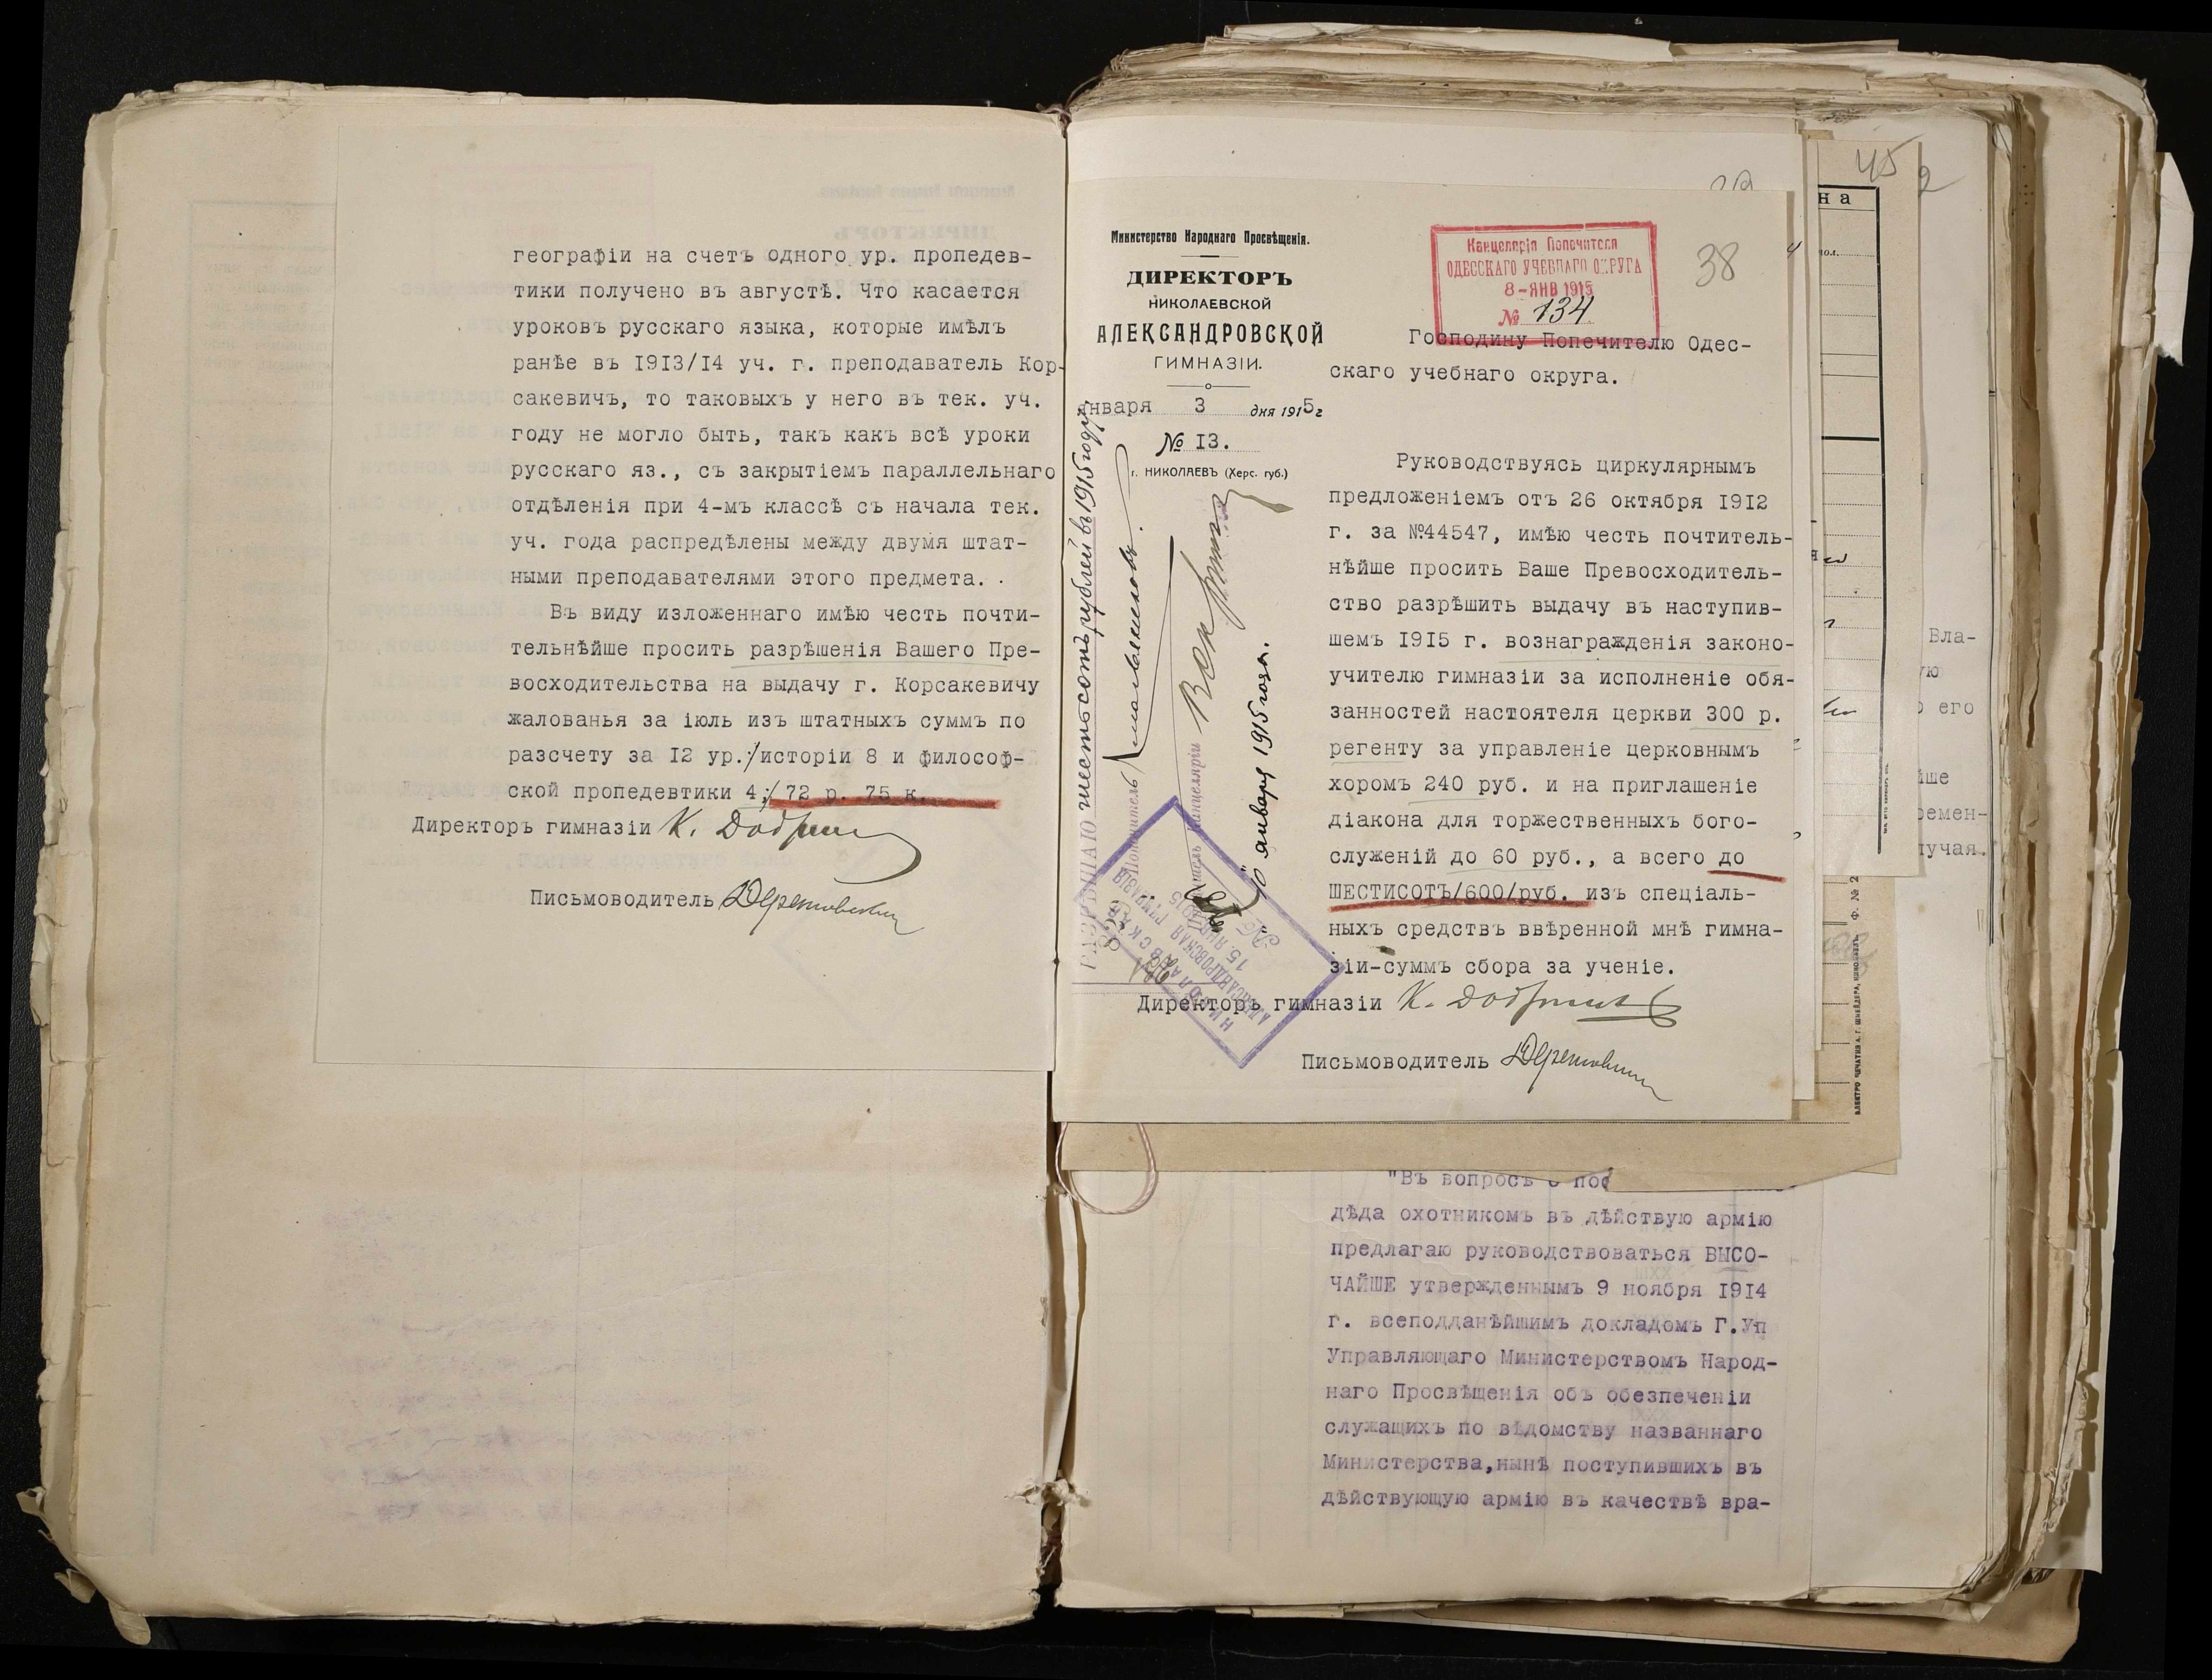 географіи на счетъ одного ур. пропедев-
тики получено въ августѣ. Что касается
уроковъ русскаго языка, которые имѣлъ
ранѣе въ 1913/14 уч. г. преподаватель Кор-
сакевичъ, то таковыхъ у него въ тек. уч.
году не могло быть, такъ какъ всѣ уроки
русскаго яз., съ закрытіемъ параллельнаго
отдѣленія при 4-мъ классѣ съ начала тек.
уч. года распредѣлены между двумя штат-
ными преподавателями этого предмета.
Въ виду изложеннаго имѣю честь почти-
тельнѣйше просить разрѣшенія Вашего Пре-
восходительства на выдачу г. Корсакевичу
жалованья за іюль изъ штатныхъ суммъ по
разсчету за I2 ур./исторіи 8 и философ-
ской пропедевтики 4;/ 72 р. 75 к.
Директоръ гимназіи
Письмоводитель
Министерство Народнаго Просвѣщенія.
ДИРЕКТОРЪ
НИКОЛАЕВСКОЙ
АЛЕКСАНДРОВСКОЙ
ГИМНАЗІИ.
января 3 дня 1915 г
№ I3.
г. НИКОЛАЕВЪ (Херс. губ.)
Канцелярія Попечителя
ОДЕССКАГО УЧЕБНАГО ОКРУГА
8-ЯНВ 1915
№ 134
38
Господину Попечителю Одес-
скаго учебнаго округа.
Руководствуясь циркулярнымъ
предложеніемъ отъ 26 октября I9I2
г. за №44547, имѣю честь почтитель-
нѣйше просить Ваше Превосходитель-
ство разрѣшить выдачу въ наступив-
шемъ I9I5 г. вознагражденія законо-
учителю гимназіи за исполненіе обя-
занностей настоятеля церкви 300 р.
регенту за управленіе церковнымъ
хоромъ 240 руб. и на приглашеніе
діакона для торжественныхъ бого-
служеній до 60 руб., а всего до
ШЕСТИСОТЪ/600/руб. изъ спеціаль-
ныхъ средствъ ввѣренной мнѣ гимна-
зіи-суммъ сбора за ученіе.
Директоръ гимназіи
Письмоводитель
РАЗРѢШАЮ шестьсотъ рублей въ 1915 году.
Попечитель
Правитель Канцеляріи
10 января 1915 года.
НИКОЛАЕВСКАЯ
АЛЕКСАНДРОВСКАЯ ГИМНАЗІЯ
15. ЯНВ. 1915
"Въ вопросѣ о пос
дѣда охотникомъ въ дѣйствую армію
предлагаю руководствоваться ВЫСО-
ЧАЙШЕ утвержденнымъ 9 ноября I9I4
г. всеподданѣйшимъ докладомъ Г.Уп
Управляющаго Министерствомъ Народ-
наго Просвѣщенія объ обезпеченіи
служащихъ по вѣдомству названнаго
Министерства,нынѣ поступившихъ въ
дѣйствующую армію въ качествѣ вра-
45
2
на
Вла-
ую
его
йше
ремен-
лучая.